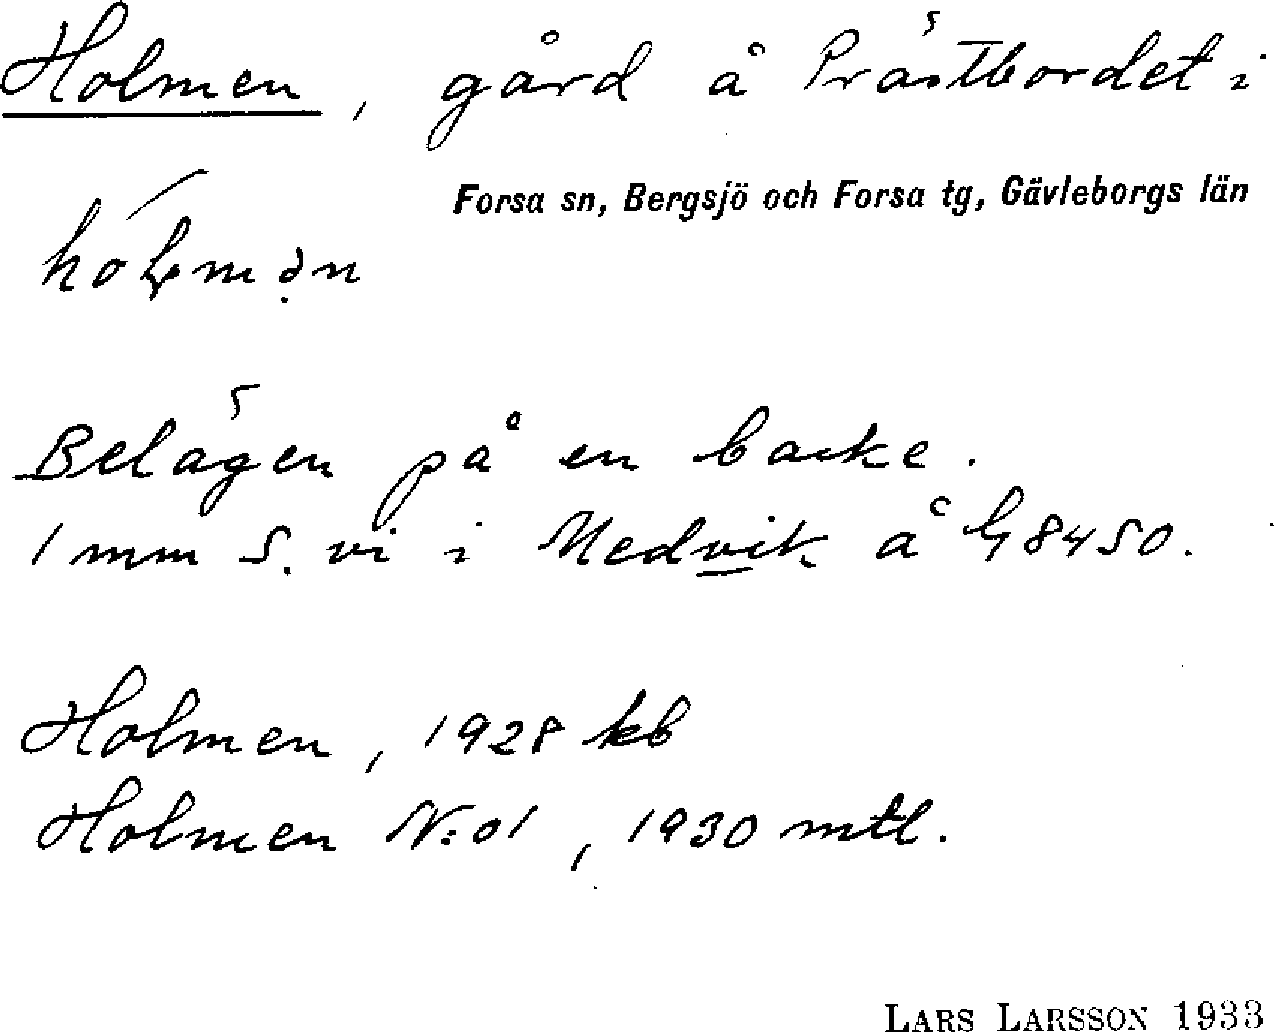 Holmen, gård å Prästbordet i
Forsa sn, Bergsjö och Forsa tg, Gävleborgs län
Belägen på en backe.
1 mm S. vi i Medvik å G8450.
Holmen, 1928 kb
Holmen N:o1, 1930 mtl.
LARS LARSSON 1933